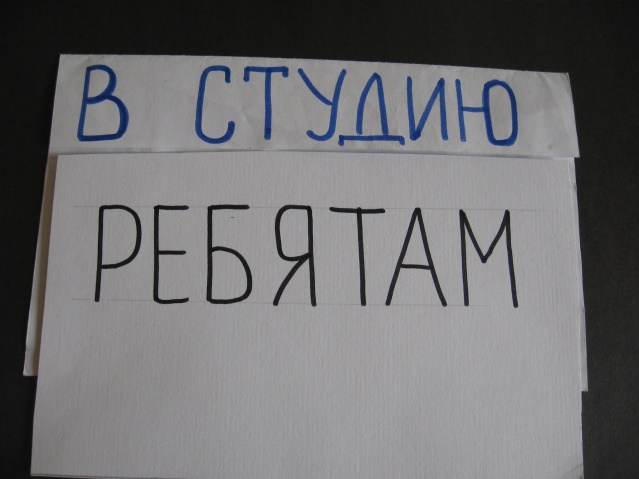 В СТУДИЮ
РЕБЯТАМ